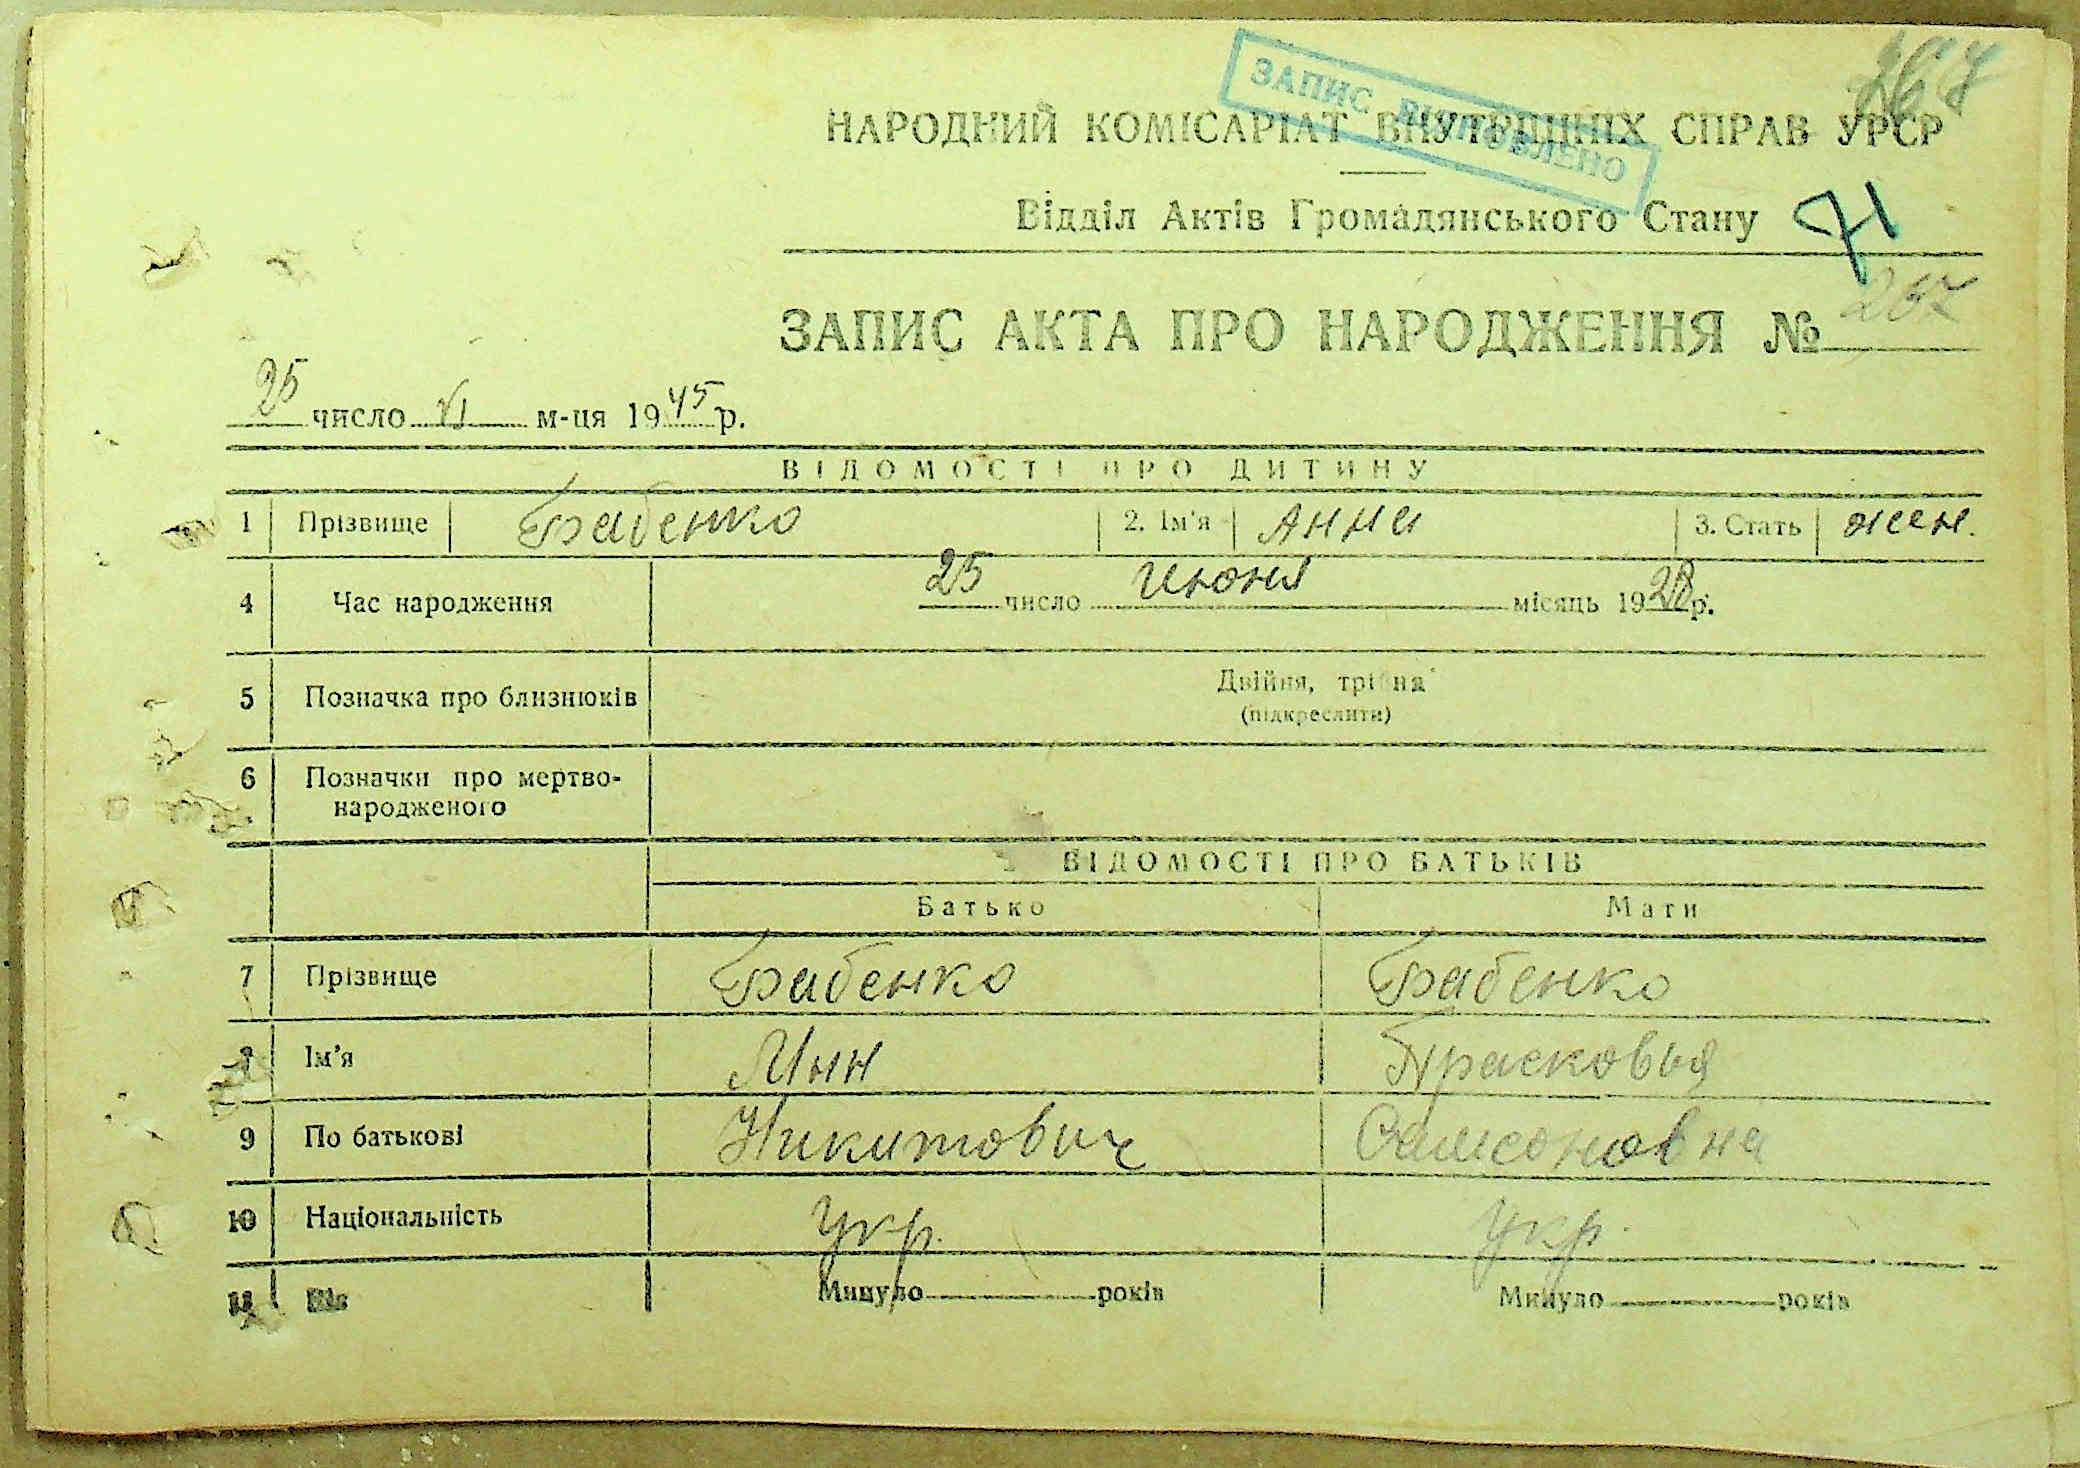 267
ЗАПИС ВІДНОВЛЕНО
НАРОДНИЙ КОМІСАРІАТ ВНУТРІШНІХ СПРАВ УРСР
Відділ Актів Громадянського Стану
ЗАПИС АКТА ПРО НАРОДЖЕННЯ № 267
25 число VI м-ця 1945 р.
ВІДОМОСТІ ПРО ДИТИНУ
1 Прізвище Бабенко 2. Ім'я Анна 3. Стать жен.
4 Час народження 25 число июня місяць 1928 р.
5 Позначка про близнюків Двійня, трійня
(підкреслити)
6 Позначки про мертво-
народженого
ВІДОМОСТІ ПРО БАТЬКІВ
Батько Мати
7 Прізвище Бабенко Бабенко
8 Ім'я Прасковья
9 По батькові Никитович Самсоновна
10 Національність укр. укр.
11 Вік Минуло років Минуло років